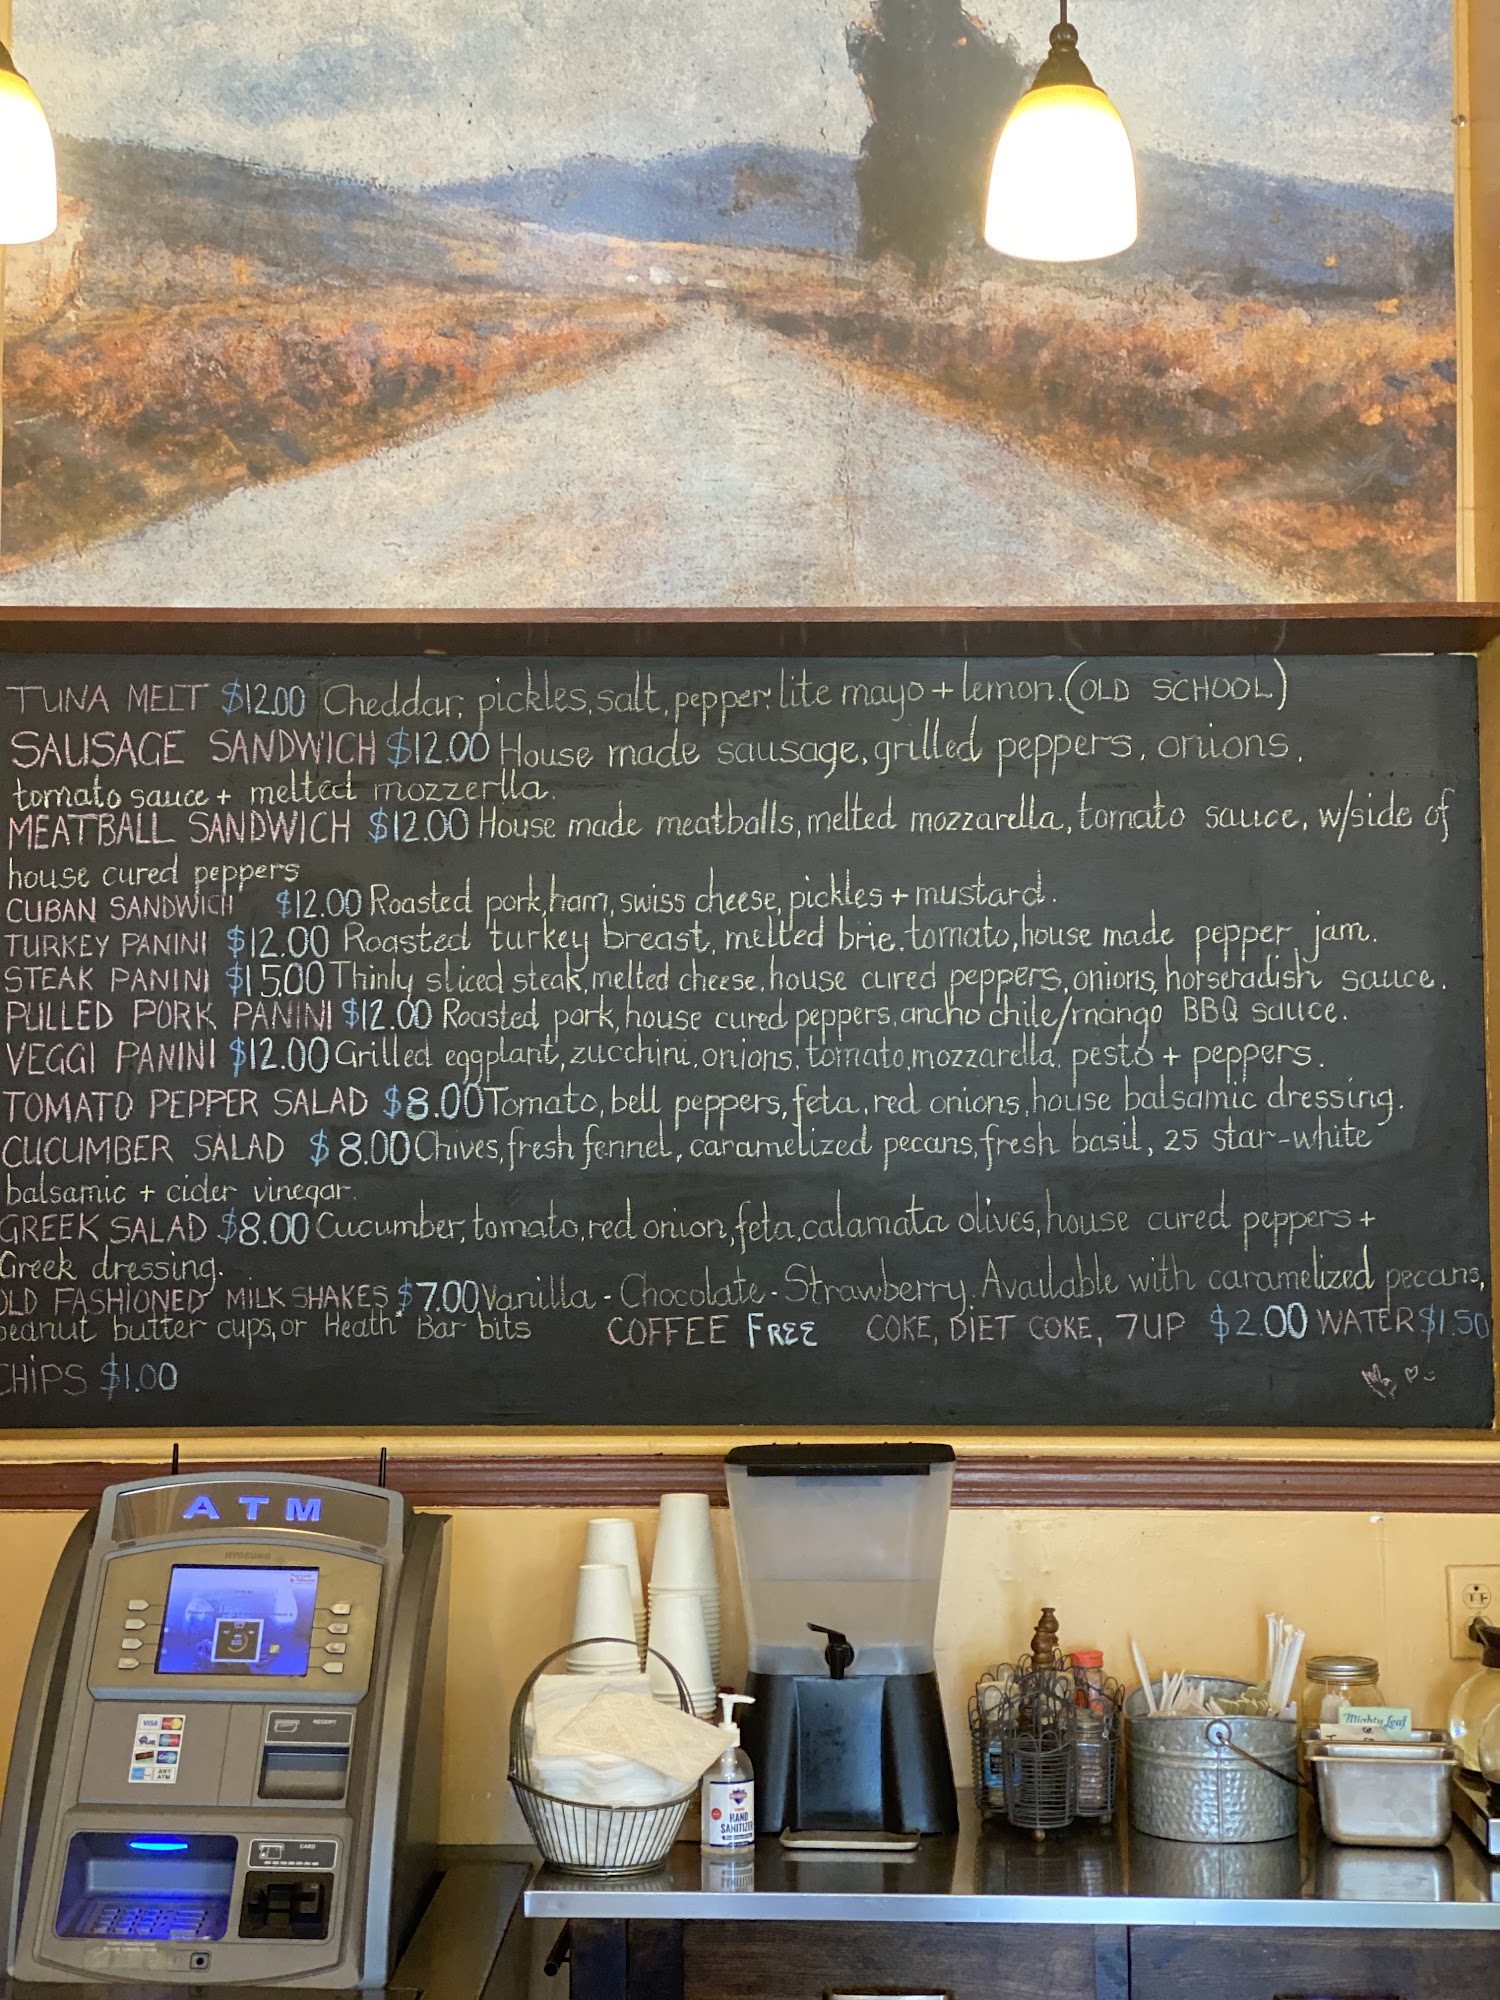 TUNA MELT $12.00 Cheddar, pickles, salt, pepper, lite mayo + lemon. (OLD SCHOOL)
SAUSAGE SANDWICH $12.00 House made sausage, grilled peppers, onions,
tomato sauce + melted mozzerlla.
MEATBALL SANDWICH $12.00 House made meatballs, melted mozzarella, tomato sauce, w/side of
house cured peppers
CUBAN SANDWICH $12.00 Roasted pork, ham, swiss cheese, pickles + mustard.
TURKEY PANINI $12.00 Roasted turkey breast, melted brie, tomato, house made pepper jam.
STEAK PANINI $15.00 Thinly sliced steak, melted cheese, house cured peppers, onions, horseradish sauce.
PULLED PORK PANINI $12.00 Roasted pork, house cured peppers, ancho chile/mango BBQ sauce.
VEGGI PANINI $12.00 Grilled eggplant, zucchini, onions, tomato, mozzarella, pesto + peppers.
TOMATO PEPPER SALAD $8.00 Tomato, bell peppers, feta, red onions, house balsamic dressing.
CUCUMBER SALAD $8.00 Chives, fresh fennel, caramelized pecans, fresh basil, 25 star-white
balsamic + cider vinegar.
GREEK SALAD $8.00 Cucumber, tomato, red onion, feta, calamata olives, house cured peppers +
Greek dressing.
OLD FASHIONED MILK SHAKES $7.00 Vanilla - Chocolate - Strawberry. Available with caramelized pecans,
peanut butter cups, or Heath* Bar bits COFFEE FREE COKE, DIET COKE, 7UP $2.00 WATER $1.50
CHIPS $1.00
ATM
HYOSUNG
RECEIPT
VISA
ANY ATM
CARD
HAND
SANITIZER
Mighty Leaf